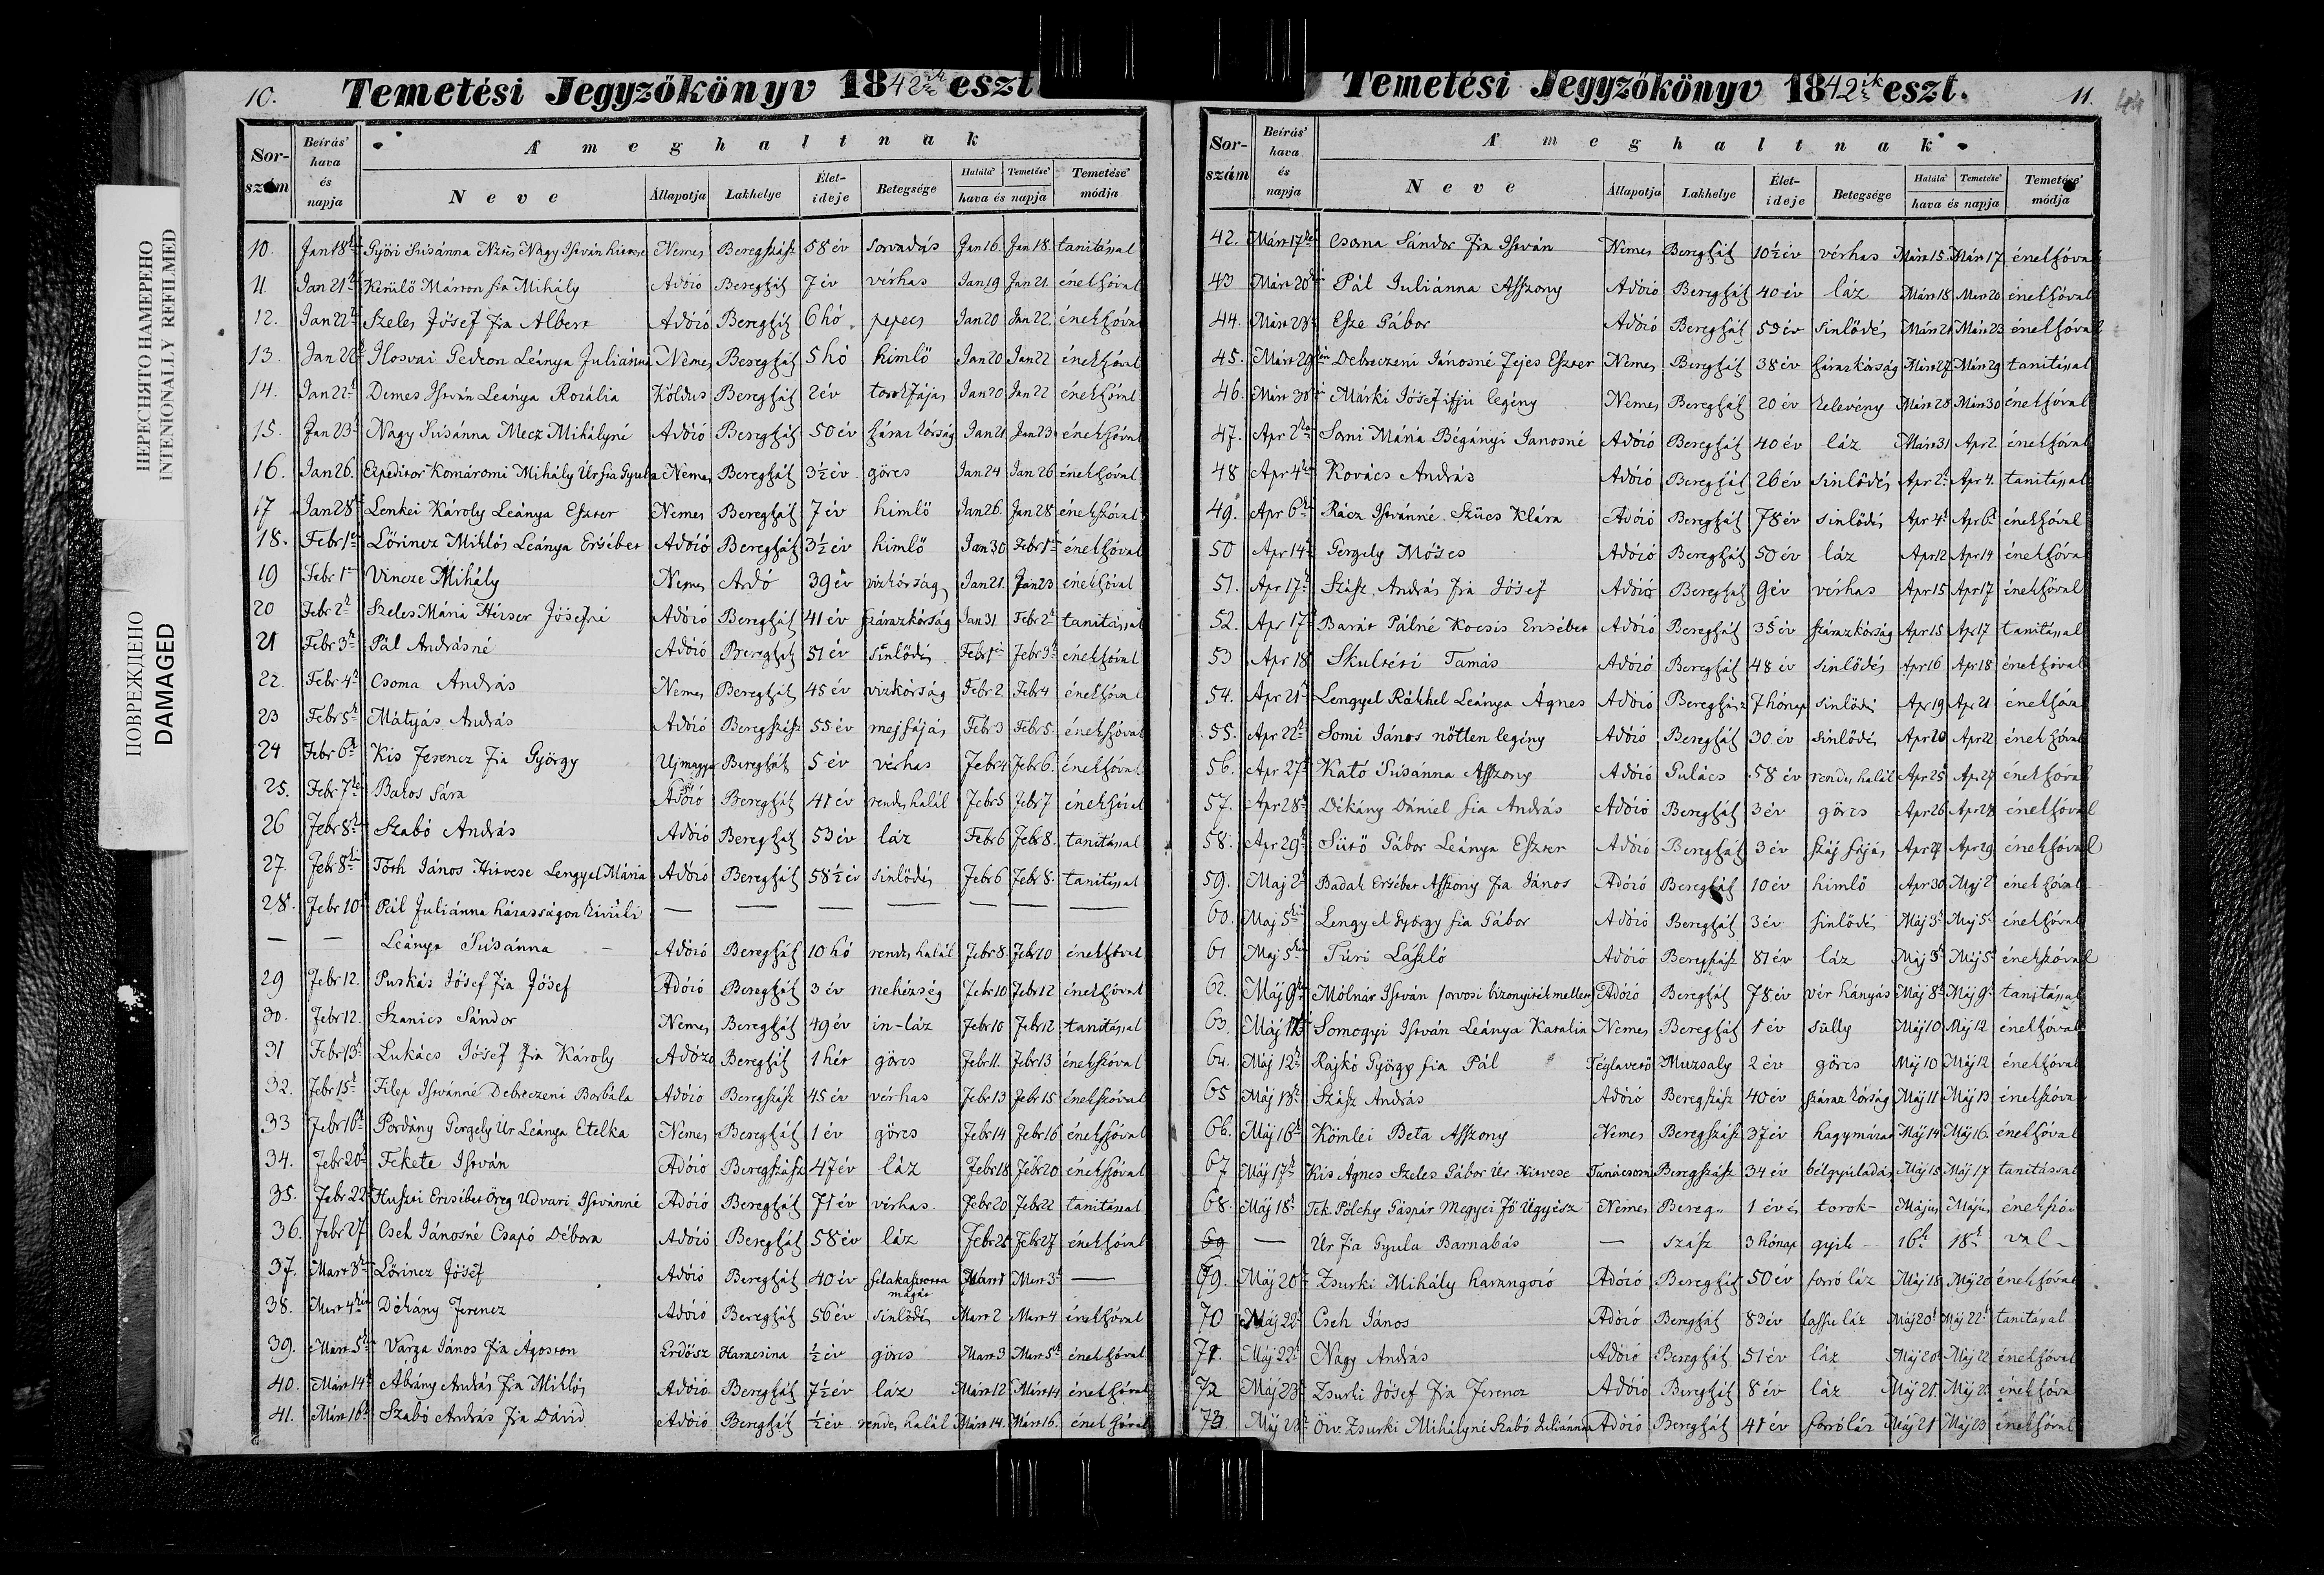 ПЕРЕСНЯТО НАМЕРЕНО
INTENIONALLY REFILMED
ПОВРЕЖДЕНО
DAMAGED
10. Temetési Jegyzőkönyv 1842ik eszt
Sor-szám Beírás' hava és napja A meghaltnak
Neve Állapotja Lakhelye Élet-ideje Betegsége Halála' Temetése' hava és napja Temetése' módja
10. Jan 18 Győri Susánna Nztes Nagy István hitvese Nemes Beregszász 58 év sorvadás Jan 16. Jan 18. tanitással
11 Jan 21 Kerülő Márton fia Mihály Adózó Bereghász 7 év vérhas Jan 19 Jan 21. énekszóval
12. Jan 22 Szeles Jósef fia Albert Adózó Bereghász 6 hó Jan 20 Jan 22. énekszóval
13. Jan 22 Ilosvai Gedeon Leánya Juliánna Nemes Bereghász 5 hó himlő Jan 20 Jan 22 énekszóval
14. Jan 22 Demes István Leánya Rozália Köldus Bereghász 2 év torokfájás Jan 20 Jan 22 énekszóval
15. Jan 23 Nagy Susánna Mecz Mihályné Adózó Bereghász 50 év száraz kórság Jan 21 Jan 23 énekszóval
16. Jan 26. Expeditor Komáromi Mihály Úr fia Gyula Nemes Bereghász 3½ év görcs Jan 24 Jan 26 énekszóval
17 Jan 28 Lenkei Károly Leánya Eszter Nemes Bereghász 7 év himlő Jan 26. Jan 28 énekszóval
18. Febr 1 Lőrincz Miklós Leánya Ersébet Adózó Bereghász 3½ év himlő Jan 30 Febr 1 énekszóval
19 Febr 1 Vincze Mihály Nemes Ardó 39 év vizkórság Jan 21. Jan 23 énekszóval
20 Febr 2 Szeles Mária Jósefné Adózó Bereghász 41 év szárazkórság Jan 31 Febr 2 tanitással
21 Febr 3 Pál Andrásné Adózó Bereghász 51 év sinlődés Febr 1 Febr 3 énekszóval
22. Febr 4 Csoma András Nemes Bereghász 45 év vizkórság Febr 2 Febr 4 énekszóval
23 Febr 5 Mátyás András Adózó Beregszász 55 év mejfájás Febr 3 Febr 5. énekszóval
24 Febr 6 Kis Ferencz fia György Ujmagyar Bereghász 5 év vérhas Febr 4 Febr 6. énekszóval
25. Febr 7 Bakos Sára Adózó Bereghász 41 év rendes halál Febr 5 Febr 7 énekszóval
26 Febr 8 Szabó András Adózó Bereghász 53 év láz Febr 6 Febr 8. tanitással
27. Febr 8 Tóth János Hitvese Lengyel Mária Adózó Bereghász 58½ év sinlődés Febr 6 Febr 8. tanitással
28. Febr 10 Pál Juliánna házasságon kivüli — — — — — — —
— — Leánya Susánna — Adózó Bereghász 10 hó rendes halál Febr 8. Febr 10 énekszóval
29 Febr 12. Puskás Jósef fia Jósef Adózó Bereghász 3 év nehézség Febr 10 Febr 12 énekszóval
30. Febr 12. Szanics Sándor Nemes Bereghász 49 év in-láz Febr 10 Febr 12 tanitással
31 Febr 13 Lukács Jósef fia Károly Adózó Bereghász 1 hét görcs Febr 11. Febr 13 énekszóval
32. Febr 15 Filep Istvánné Debreczeni Borbála Adózó Beregszász 45 év vérhas Febr 13 Febr 15 énekszóval
33 Febr 16 Pordány Gergely Úr Leánya Etelka Nemes Bereghász 1 év görcs Febr 14 Febr 16 énekszóval
34. Febr 20 Fekete István Adózó Beregszász 47 év láz Febr 18 Febr 20 énekszóval
35. Febr 22 Huszti Ersébet Öreg Udvari Istvánné Adózó Bereghász 71 év vérhas Febr 20 Febr 22 tanitással
36. Febr 27 Cseh Jánosné Csapó Débora Adózó Bereghász 58 év láz Febr 25 Febr 27 énekszóval
37. Mart 3 Lőrincz Jósef Adózó Bereghász 40 év felakasztotta magát Márt 1 Mart 3 —
38. Mart 4 Dékány Ferencz Adózó Bereghász 56 év sinlődés Mart 2 Mart 4 énekszóval
39. Mart 5 Varga János fia Ágoston Erdősz ½ év görcs Mart 3 Mart 5 énekszóval
40. Márt 14 Ábrány András fia Miklós Adózó Bereghász 7½ év láz Márt 12 Márt 14 énekszóval
41. Márt 16 Szabó András fia Dávid Adózó Bereghász ½ év rendes halál Márt 14. Márt 16. énekszóval
Temetési Jegyzőkönyv 1842ik eszt. 11. 44
Sor-szám Beírás' hava és napja A meghaltnak
Neve Állapotja Lakhelye Élet-ideje Betegsége Halála' Temetése' hava és napja Temetése' módja
42. Márt 17 Csoma Sándor fia István Nemes Bereghász 10½ év vérhas Márt 15 Márt 17 énekszóval
43 Márt 20 Pál Juliánna Asszony Adózó Bereghász 40 év láz Márt 18 Mart 20 énekszóval
44. Márt 23 Esze Gábor Adózó Bereghász 53 év sinlődés Márt 21 Márt 23 énekszóval
45. Márt 29 Debreczeni Jánosné Fejes Eszter Nemes Bereghász 38 év szárazkórság Márt 27 Márt 29 tanitással
46. Márt 30 Márki Jósef ifju legény Nemes Bereghász 20 év kelevény Márt 28 Márt 30 énekszóval
47. Apr 2 Sani Mária Bégányi Janosné Adózó Bereghász 40 év láz Márt 31 Apr 2. énekszóval
48 Apr 4 Kovács András Adózó Bereghász 26 év sinlődés Apr 2 Apr 4. tanitással
49. Apr 6 Rácz Istvánné Szűcs Klára Adózó Bereghász 78 év sinlődés Apr 4 Apr 6 énekszóval
50 Apr 14 Gergely Móses Adózó Bereghász 50 év láz Apr 12 Apr 14 énekszóval
51. Apr 17 Szász András fia Jósef Adózó Bereghász 9 év vérhas Apr 15 Apr 17 énekszóval
52. Apr 17 Barát Pálné Kocsis Ersébet Adózó Bereghász 35 év szárazkórság Apr 15 Apr 17 tanitással
53 Apr 18 Skultéti Tamás Adózó Bereghász 48 év sinlődés Apr 16 Apr 18 énekszóval
54. Apr 21 Lengyel Rákhel Leánya Ágnes Adózó Beregszász 7 hónap sinlődés Apr 19 Apr 21 énekszóval
55. Apr 22 Somi János nőtlen legény Adózó Bereghász 30 év sinlődés Apr 20 Apr 22 énekszóval
56. Apr 27 Kató Susánna Asszony Adózó Gulács 58 év rendes halál Apr 25 Apr 27 énekszóval
57. Apr 28 Dékány Dániel fia András Adózó Bereghász 3 év görcs Apr 26 Apr 28 énekszóval
58. Apr 29 Sütő Gábor Leánya Eszter Adózó Bereghász 3 év száj fájás Apr 27 Apr 29 énekszóval
59. Maj 2 Badak Ersébet Asszony fia János Adózó Bereghász 10 év himlő Apr 30 Maj 2 énekszóval
60. Maj 5 Lengyel György fia Gábor Adózó Bereghász 3 év sinlődés Máj 3 Maj 5 énekszóval
61 Maj 5 Túri László Adózó Beregszász 81 év láz Máj 3 Máj 5 énekszóval
62. Máj 9 Molnár István (orvosi bizonyiték mellett) Adózó Bereghász 78 év vér hányás Máj 8 Máj 9 tanitással
63. Máj 12 Somogyi István Leánya Katalin Nemes Bereghász 1 év sülly Máj 10 Máj 12 énekszóval
64. Máj 12 Rajkó György fia Pál Téglavető Muzsaly 2 év görcs Máj 10 Máj 12 énekszóval
65 Máj 13 Szász András Adózó Beregszász 40 év száraz kórság Máj 11 Máj 13 énekszóval
66. Máj 16 Kömlei Beta Asszony Nemes Beregszász 37 év hagymáz Máj 14 Máj 16. énekszóval
67 Máj 17 Kis Ágnes Szeles Gábor Úr Hitvese Tanácsnok Beregszász 34 év bélgyuladás Máj 15 Máj 17 tanitással
68. Máj 18 Tek. Pólchy Gáspár Megyei Fő Ügyész Nemes Bereg- 1 év és torok- Május Május énekszó-
69 — Úr fia Gyula Barnabás — szász 3 hónap gyik 16 18 val
69. Máj 20 Zsurki Mihály harangozó Adózó Bereghász 50 év forró láz Máj 18 Máj 20 énekszóval
70 Máj 22 Cseh János Adózó Bereghász 83 év lassu láz Máj 20 Máj 22 tanitással
71. Máj 22 Nagy András Adózó Bereghász 51 év láz Máj 20 Máj 22 énekszóval
72 Máj 23 Zsurki Jósef fia Ferencz Adózó Bereghász 8 év láz Máj 21 Máj 23 énekszóval
73. Máj 23 Özv. Zsurki Mihályné Szabó Juliánna Adózó Bereghász 41 év forró láz Máj 21 Máj 23 énekszóval